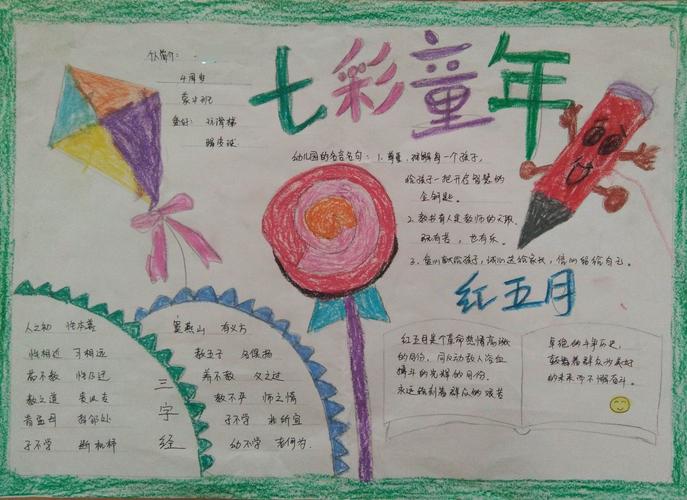 七彩童年
个人简介：
4周岁
蒙氏班
爱好：玩滑梯
踢皮球
幼儿园的名言名句：1. 尊重、理解每一个孩子，
给孩子一把开启智慧的
金钥匙。
2. 教书育人是教师的天职
既有苦，也有乐。
3. 爱心献给孩子，诚心送给家长，信心留给自己。
红五月
人之初 性本善
性相近 习相远
苟不教 性乃迁
教之道 贵以专
昔孟母 择邻处
子不学 断机杼
三字经
窦燕山 有义方
教五子 名俱扬
养不教 父之过
教不严 师之惰
子不学 非所宜
幼不学 老何为
红五月是个革命热情高涨
的月份，同反动敌人浴血
搏斗的光辉的月份。
永远铭刻着群众的艰苦
卓绝的斗争历史，
鼓舞着群众为美好
的未来而不懈奋斗。